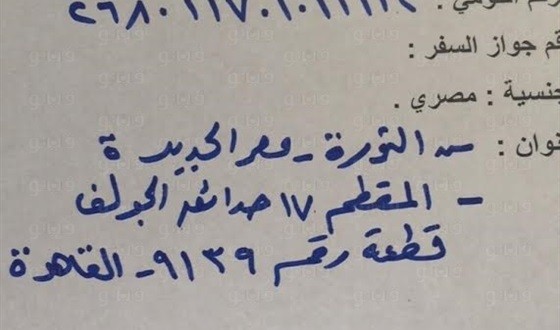 القومي : ٢٦٨٠١١٧٠١٠١
رقم جواز السفر :
الجنسية : مصري .
العنوان : ـ الثورة - مصر الجديدة
- المقطم ١٧ حدائق الجولف
قطعة رقم ٩١٣٩ - القاهرة